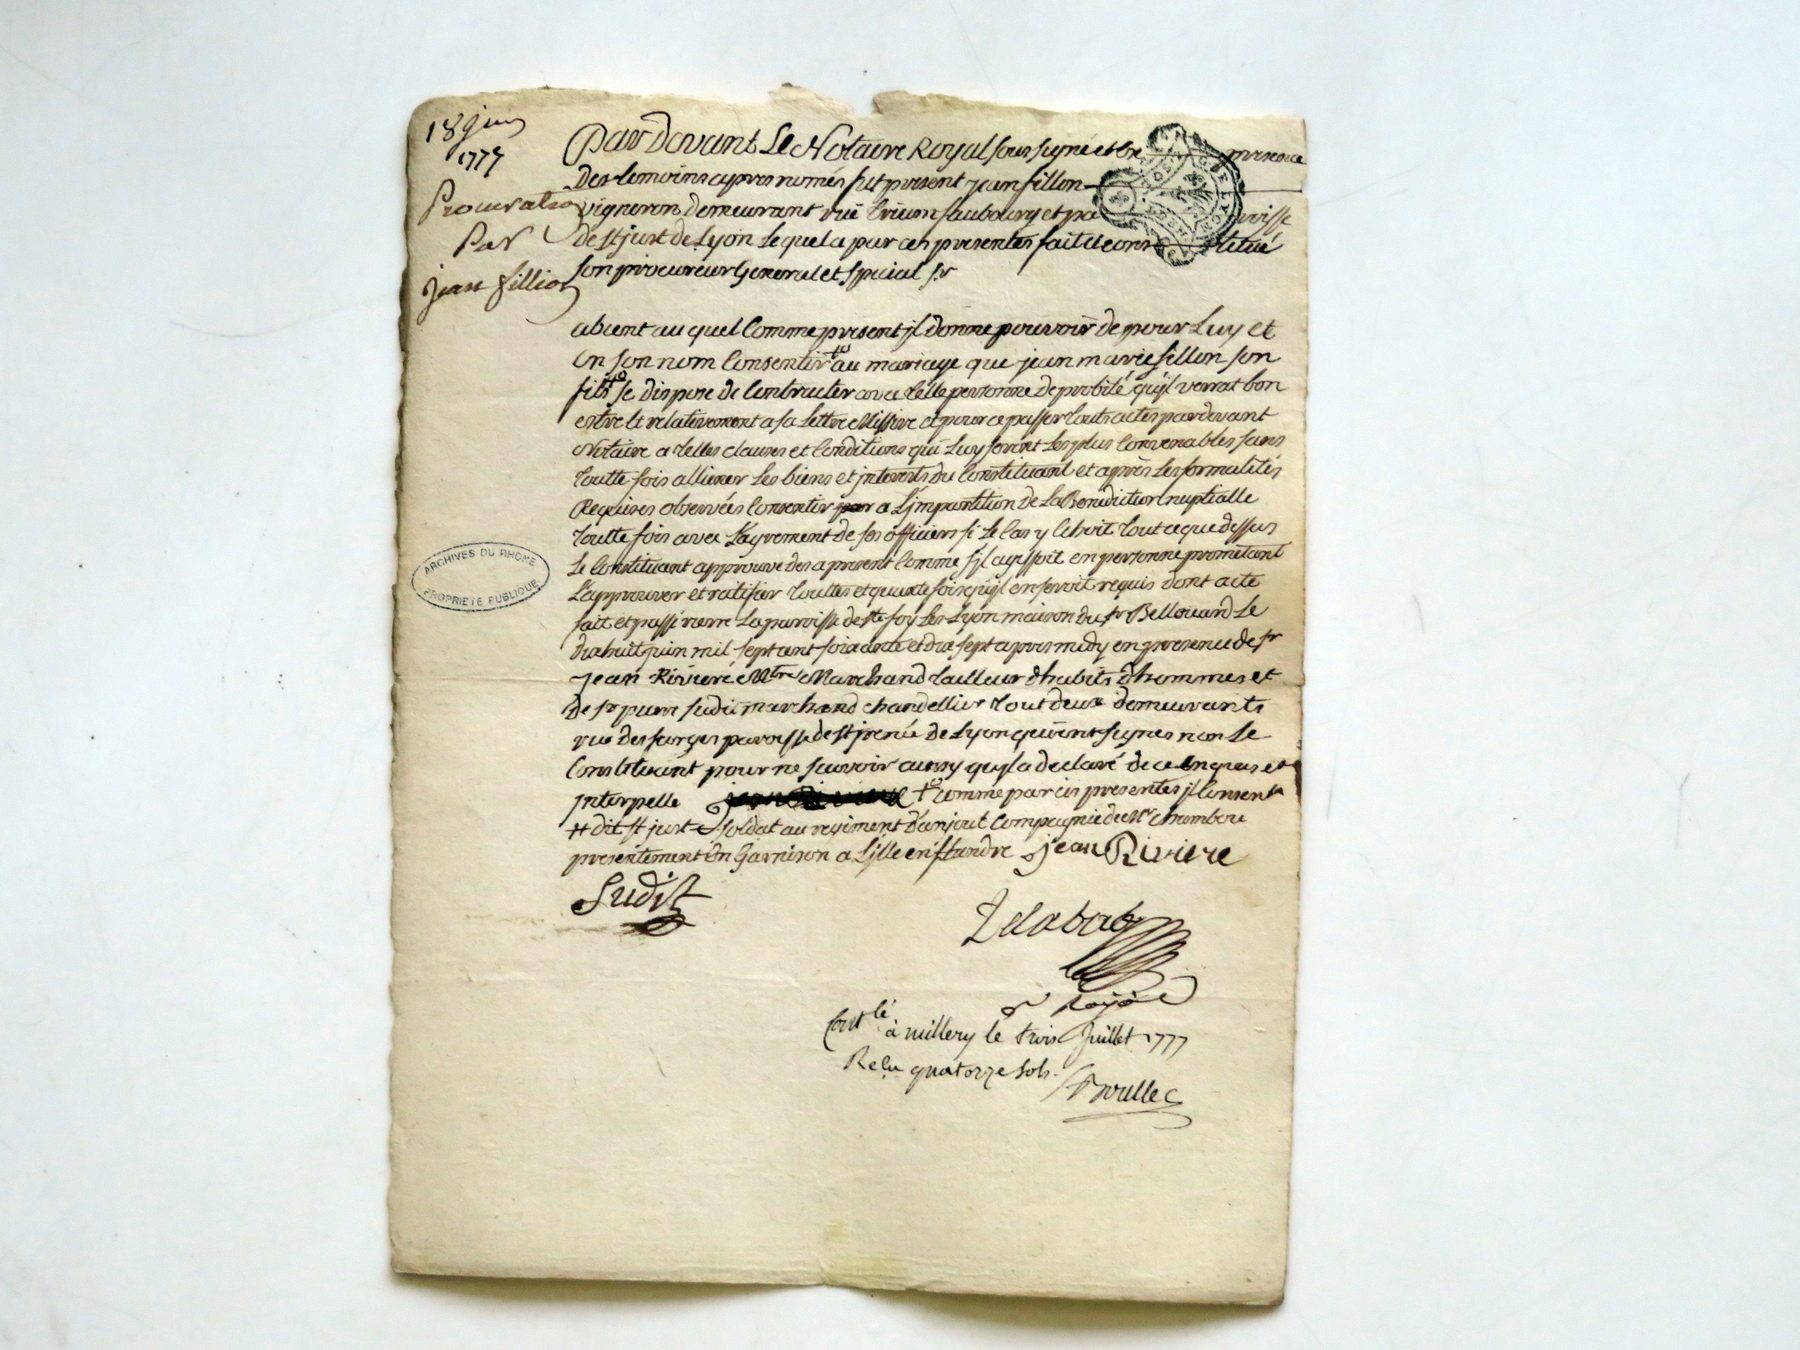 18 juin
1777
Procuration
Par
jean fillion
Par Devant Le Notaire Royal soussigné et en presence
Des temoins apres només fut present jean fillon
vigneron demeurant ruë trion faubourg et paroisse
de st just de Lyon Lequel a par ces presentes fait et constitué
son procureur General et Special sr
absent au quel Comme present jl donne pouvoir de pour Luy et
En son nom Consentir au mariage que jean marie fillon son
fils se dispose de Contracter avec telle personne de probité qu'jl verrat bon
estre et relativement a sa Lettre Missive et pour ce passer touts actes pardevant
Notaire a telles clauses et Conditions qui Luy seront Les plus Convenables sans
toutte fois alliener Les biens et jnterests du Constituant et après Les formalités
Requises observées Consentir a L'jmpartition de La Benediction nuptialle
toutte fois avec L'agrement de ses officiers si Le Cas y Echoit tout ce que dessus
Le Constituant approuve des apresent Comme s'jl agissoit en personne prometant
L'approuver et ratifier touttes et quante fois qu'jl en seroit requis dont acte
fait et passé La paroisse de ste foy Les Lyon maison du sr Bellouard Le
dix huit juin mil sept cent soixante et dix sept apres midy en presence de sr
jean Riviere Mtre Marchand tailleur d'habits d'hommes et
De sr pierre Sudit marchand chandellier tout deux demeurants
rue des farges paroisse de st jrenée de Lyon qui ont signés non Le
Constituant pour ne savoir aussy qu'jl a declaré de ce Enquis et
jnterpelle comme par ces presentes jl Consent
# dit st just soldat au regiment d'anjout Compagnie de Mr chambou
presentement En Garnison a Lille en flandre jean Riviere
Sudit
Delabat
Nre Royal
Contlé à millery le trois Juillet 1777
Reçu quatorze sols
ARCHIVES DU RHONE
PROPRIETE PUBLIQUE